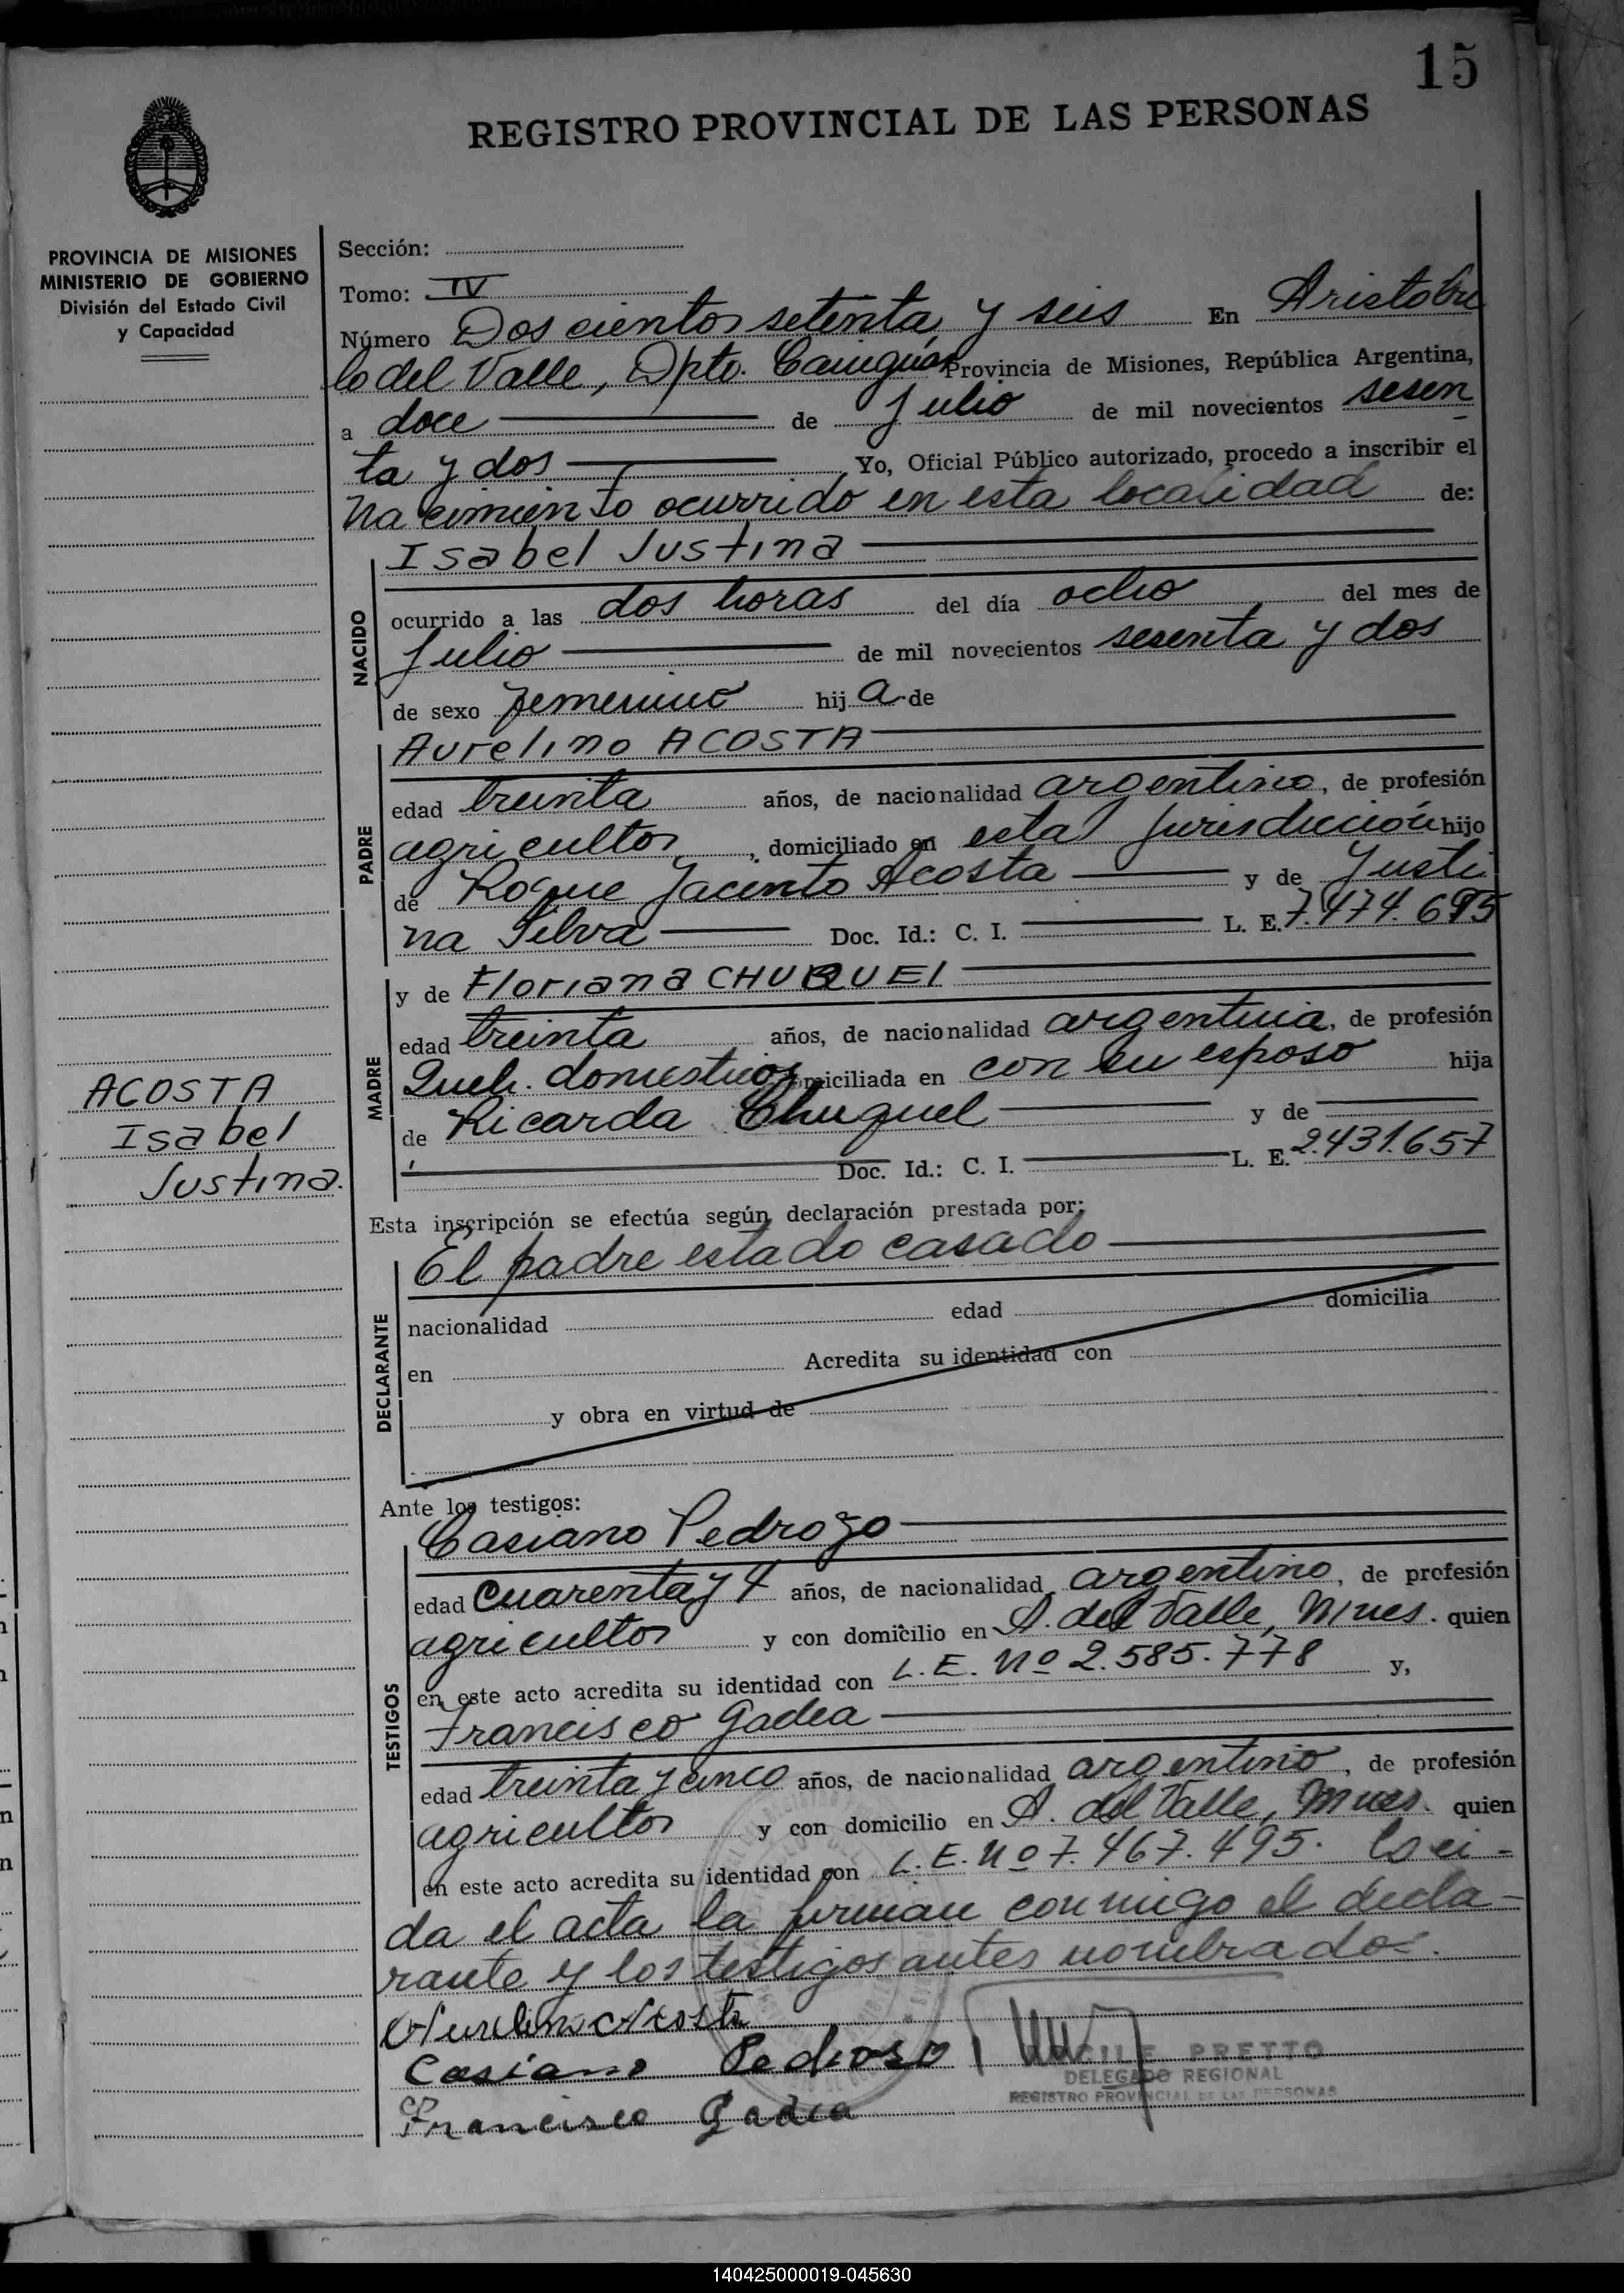 15
REGISTRO PROVINCIAL DE LAS PERSONAS
PROVINCIA DE MISIONES
MINISTERIO DE GOBIERNO
División del Estado Civil
y Capacidad
ACOSTA
Isabel
Justina.
Sección:
Tomo: IV
Número Doscientos setenta y seis En Aristobu
lo del Valle, Dpto. Cainguás Provincia de Misiones, República Argentina,
a doce de Julio de mil novecientos sesen
ta y dos Yo, Oficial Público autorizado, procedo a inscribir el
Nacimiento ocurrido en esta localidad de:
NACIDO
Isabel Justina
ocurrido a las dos horas del día ocho del mes de
Julio de mil novecientos sesenta y dos
de sexo femenino hija de
PADRE
Aurelino ACOSTA
edad treinta años, de nacionalidad argentino, de profesión
agricultor, domiciliado en esta Jurisdicción hijo
de Roque Jacinto Acosta y de Justi
na Silva Doc. Id.: C. I. L. E. 7.474.695
MADRE
y de Floriana CHUQUEI
edad treinta años, de nacionalidad argentina, de profesión
Queh. domesticos domiciliada en con su esposo hija
de Ricarda Chuquel y de
Doc. Id.: C. I. L. E. 2.431.657
Esta inscripción se efectúa según declaración prestada por:
DECLARANTE
El padre estado casado
nacionalidad edad domicilia
en Acredita su identidad con
y obra en virtud de
Ante los testigos:
TESTIGOS
Casiano Pedrozo
edad Cuarenta y 4 años, de nacionalidad argentino, de profesión
agricultor y con domicilio en A. del Valle, Mnes. quien
en este acto acredita su identidad con L.E. Nº 2.585.778 y,
Francisco Gadea
edad treinta y cinco años, de nacionalidad argentino, de profesión
agricultor y con domicilio en A. del Valle, Mnes. quien
en este acto acredita su identidad con L.E. Nº 7.467.495. Leí-
da el acta la firman conmigo el decla-
rante y los testigos antes nombrados.
Aurelino Acosta
Casiano Pedroso
PRETTO
DELEGADO REGIONAL
REGISTRO PROVINCIAL DE LAS PERSONAS
Francisco Gadea
140425000019-045630